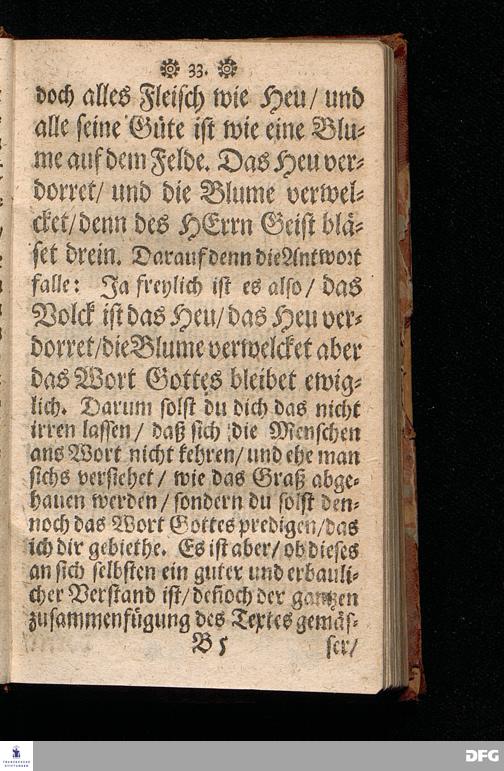 33.
doch alles Fleisch wie Heu/ und
alle seine Güte ist wie eine Blu-
me auf dem Felde. Das Heu ver-
dorret/ und die Blume verwel-
cket/ denn des HErrn Geist blä-
set drein. Darauf denn die Antwort
falle: Ja freylich ist es also/ das
Volck ist das Heu/ das Heu ver-
dorret/ die Blume verwelcket aber
das Wort Gottes bleibet ewig-
lich. Darum solst du dich das nicht
irren lassen/ daß sich die Menschen
ans Wort nicht kehren/ und ehe man
sichs versiehet/ wie das Graß abge-
hauen werden/ sondern du solst den-
noch das Wort Gottes predigen/ das
ich dir gebiethe. Es ist aber/ ob dieses
an sich selbsten ein guter und erbauli-
cher Verstand ist/ deñoch der gantzen
zusammenfügung des Textes gemäs-
B 5 ser/
FRANCKESCHE
STIFTUNGEN
DFG